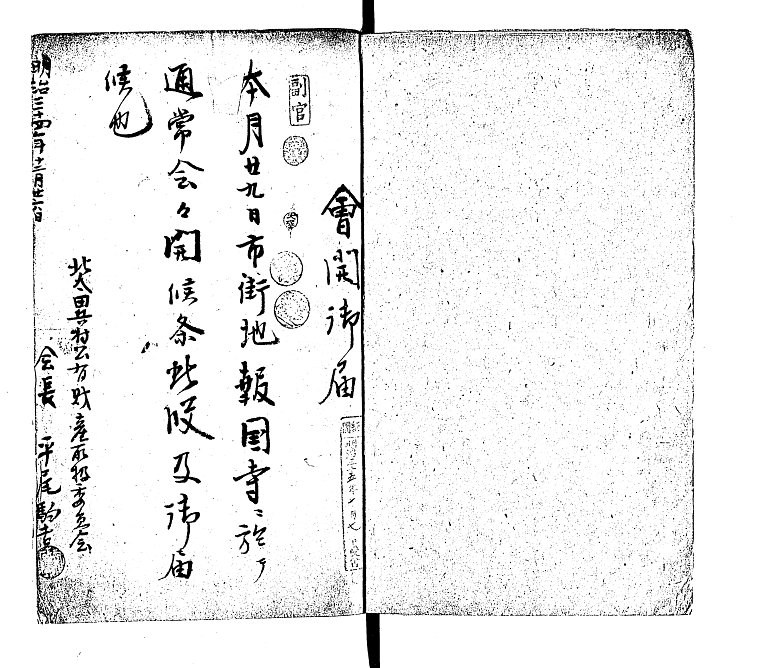 會開御届
副官
本月廿九日市街地報国寺ニ於テ
通常会々開候条此段及御届
候也
明治三十四年十二月廿六日
北太田兵村公有財産取扱委員会
会長 平尾駒吉